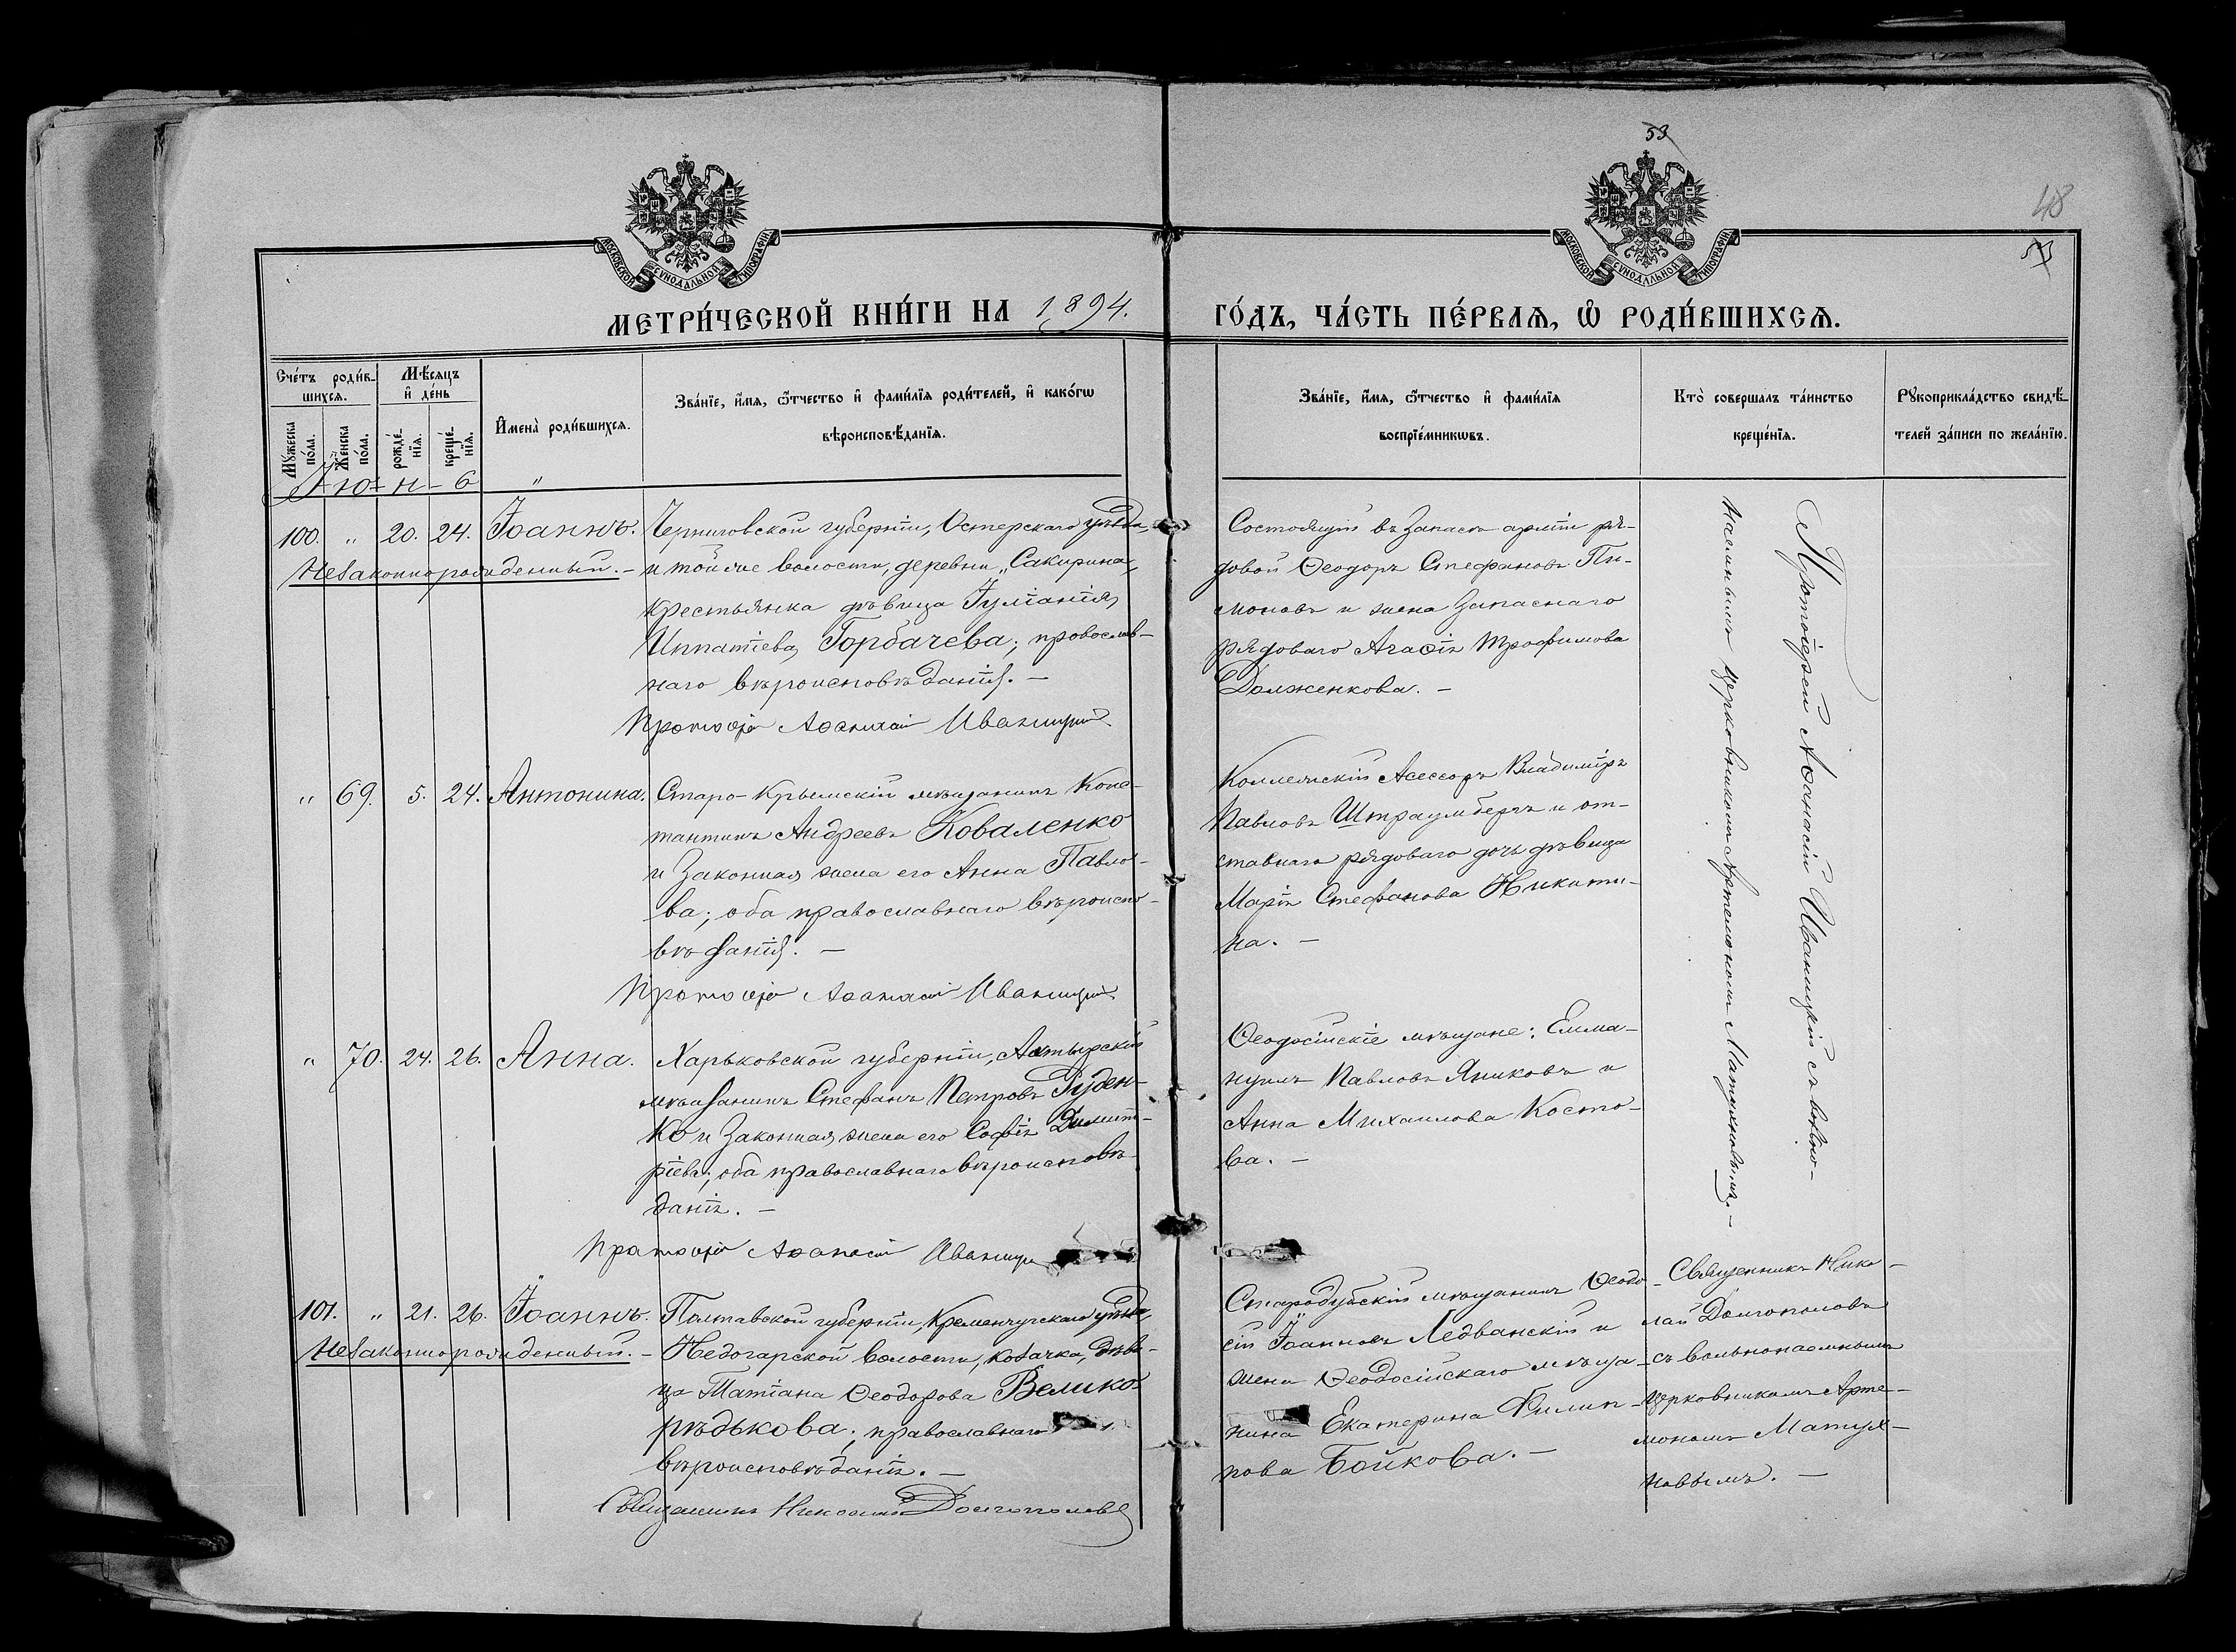 53
48
53
МОСКОВСКОЙ СѴНОДАЛЬНОЙ ТИПОГРАФІИ
МОСКОВСКОЙ СѴНОДАЛЬНОЙ ТИПОГРАФІИ
МЕТРИ́ЧЕСКОЙ КНИ́ГИ НА 1894.
ГО́ДЪ, ЧА́СТЬ ПЕ́РВАѦ, Ѡ҆ РОДИ́ВШИХСѦ.
Сче́тъ роди́в-
шихсѧ.
Мѣ́сѧцъ
и҆ де́нь
Му́жеска по́ла.
Же́нска по́ла.
рожде́-нїѧ.
креще́-нїѧ.
И҆мена̀ роди́вшихсѧ.
Зва́нїе, и҆́мѧ, ѻ҆́тчество и҆ фами́лїѧ роди́телей, и҆ како́гѡ
вѣроисповѣ́данїѧ.
Зва́нїе, и҆́мѧ, ѻ҆́тчество и҆ фами́лїѧ
воспрїе́мникѡвъ.
Кто̀ соверша́лъ та́инство
креще́нїѧ.
Рꙋкоприкла́дство свидѣ́-
телей за́писи по жела́нїю.
І - ю - н - б "
100. " 20. 24. Іоаннъ.
Незаконнорожденный. –
Черниговской губерніи, Остерскаго уѣзда,
и той же волости, деревни „Сакирина„
крестьянка дѣвица Іуліанія
Ипатіева Горбачева; провослав-
наго вѣроисповѣданія. –
Протоіер Аѳанасій Иваницкій
Состоящій въ запасѣ арміи ря-
довой Ѳеодоръ Стефановъ Пи-
моновъ и жена запаснаго
рядоваго Агаѳія Трофимова
Долженкова. –
Протоіерей Аѳанасій Иваницкій съ вольно-
наемнымъ церковникомъ Артемономъ Матухновымъ. –
" 69. 5. 24. Антонина.
Старо-Крымскій мѣщанинъ Конс-
тантинъ Андреевъ Коваленко
и законная жена его Анна Павло-
ва; оба православнаго вѣроиспо-
вѣданія. –
Протоіер Аѳанасій Иваницкій
Коллежскій Асессоръ Владиміръ
Павловъ Штраумбергъ и от-
ставнаго рядоваго дочь дѣвица
Марія Стефанова Никити-
на. –
" 70. 24. 26. Анна.
Харьковской губерніи, Ахтырскій
мѣщанинъ Стефанъ Петровъ Руден-
ко и законная жена его Софія Димит-
ріева; оба православнаго вѣроисповѣ-
данія. –
Протоіер Аѳанасій Иваницк
Ѳеодосійскіе мѣщане: Емма-
нуилъ Павловъ Яниковъ и
Анна Михаилова Косто-
ва. –
101. " 21. 26. Іоаннъ.
Незаконнорожденный. –
Полтавской губерніи, Кременчугскаго уѣзда,
Недогарской волости, козачка, дѣви-
ца Татіана Ѳеодорова Велико-
рѣдькова; православнаго
вѣроисповѣданія. –
Священникъ Николай Долгополовъ
Стародубскій мѣщанинъ Ѳеодо-
сій Іоанновъ Ледванскій и
жена Ѳеодосійскаго мѣща-
нина Екатерина Филип-
пова Бойкова. –
Священникъ Нико-
лай Долгополовъ
съ вольнонаемнымъ
церковникомъ Арте-
мономъ Матух-
новымъ. –